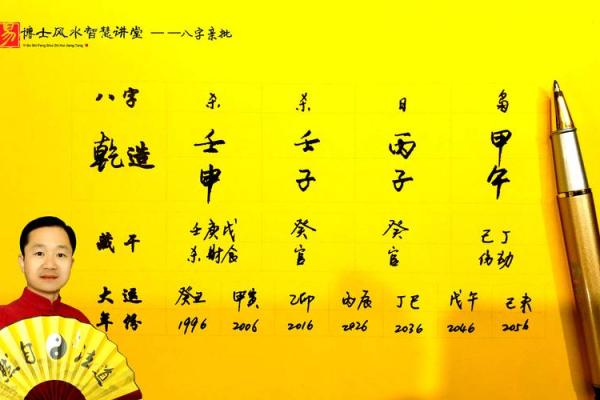 易 博士风水智慧讲堂 — —八字亲批
Yi Bo Shi Feng Shui Zhi Hui Jiang Tang
八字 杀 杀 日 枭
乾造 壬 壬 丙 甲
申 子 子 午
藏干 壬庚戊 癸 癸 己丁
杀财食 官 官 伤劫
大运 癸丑 甲寅 乙卯 丙辰 丁巳 戊午 己未
年份 1996 2006 2016 2026 2036 2046 2056
然自 法道